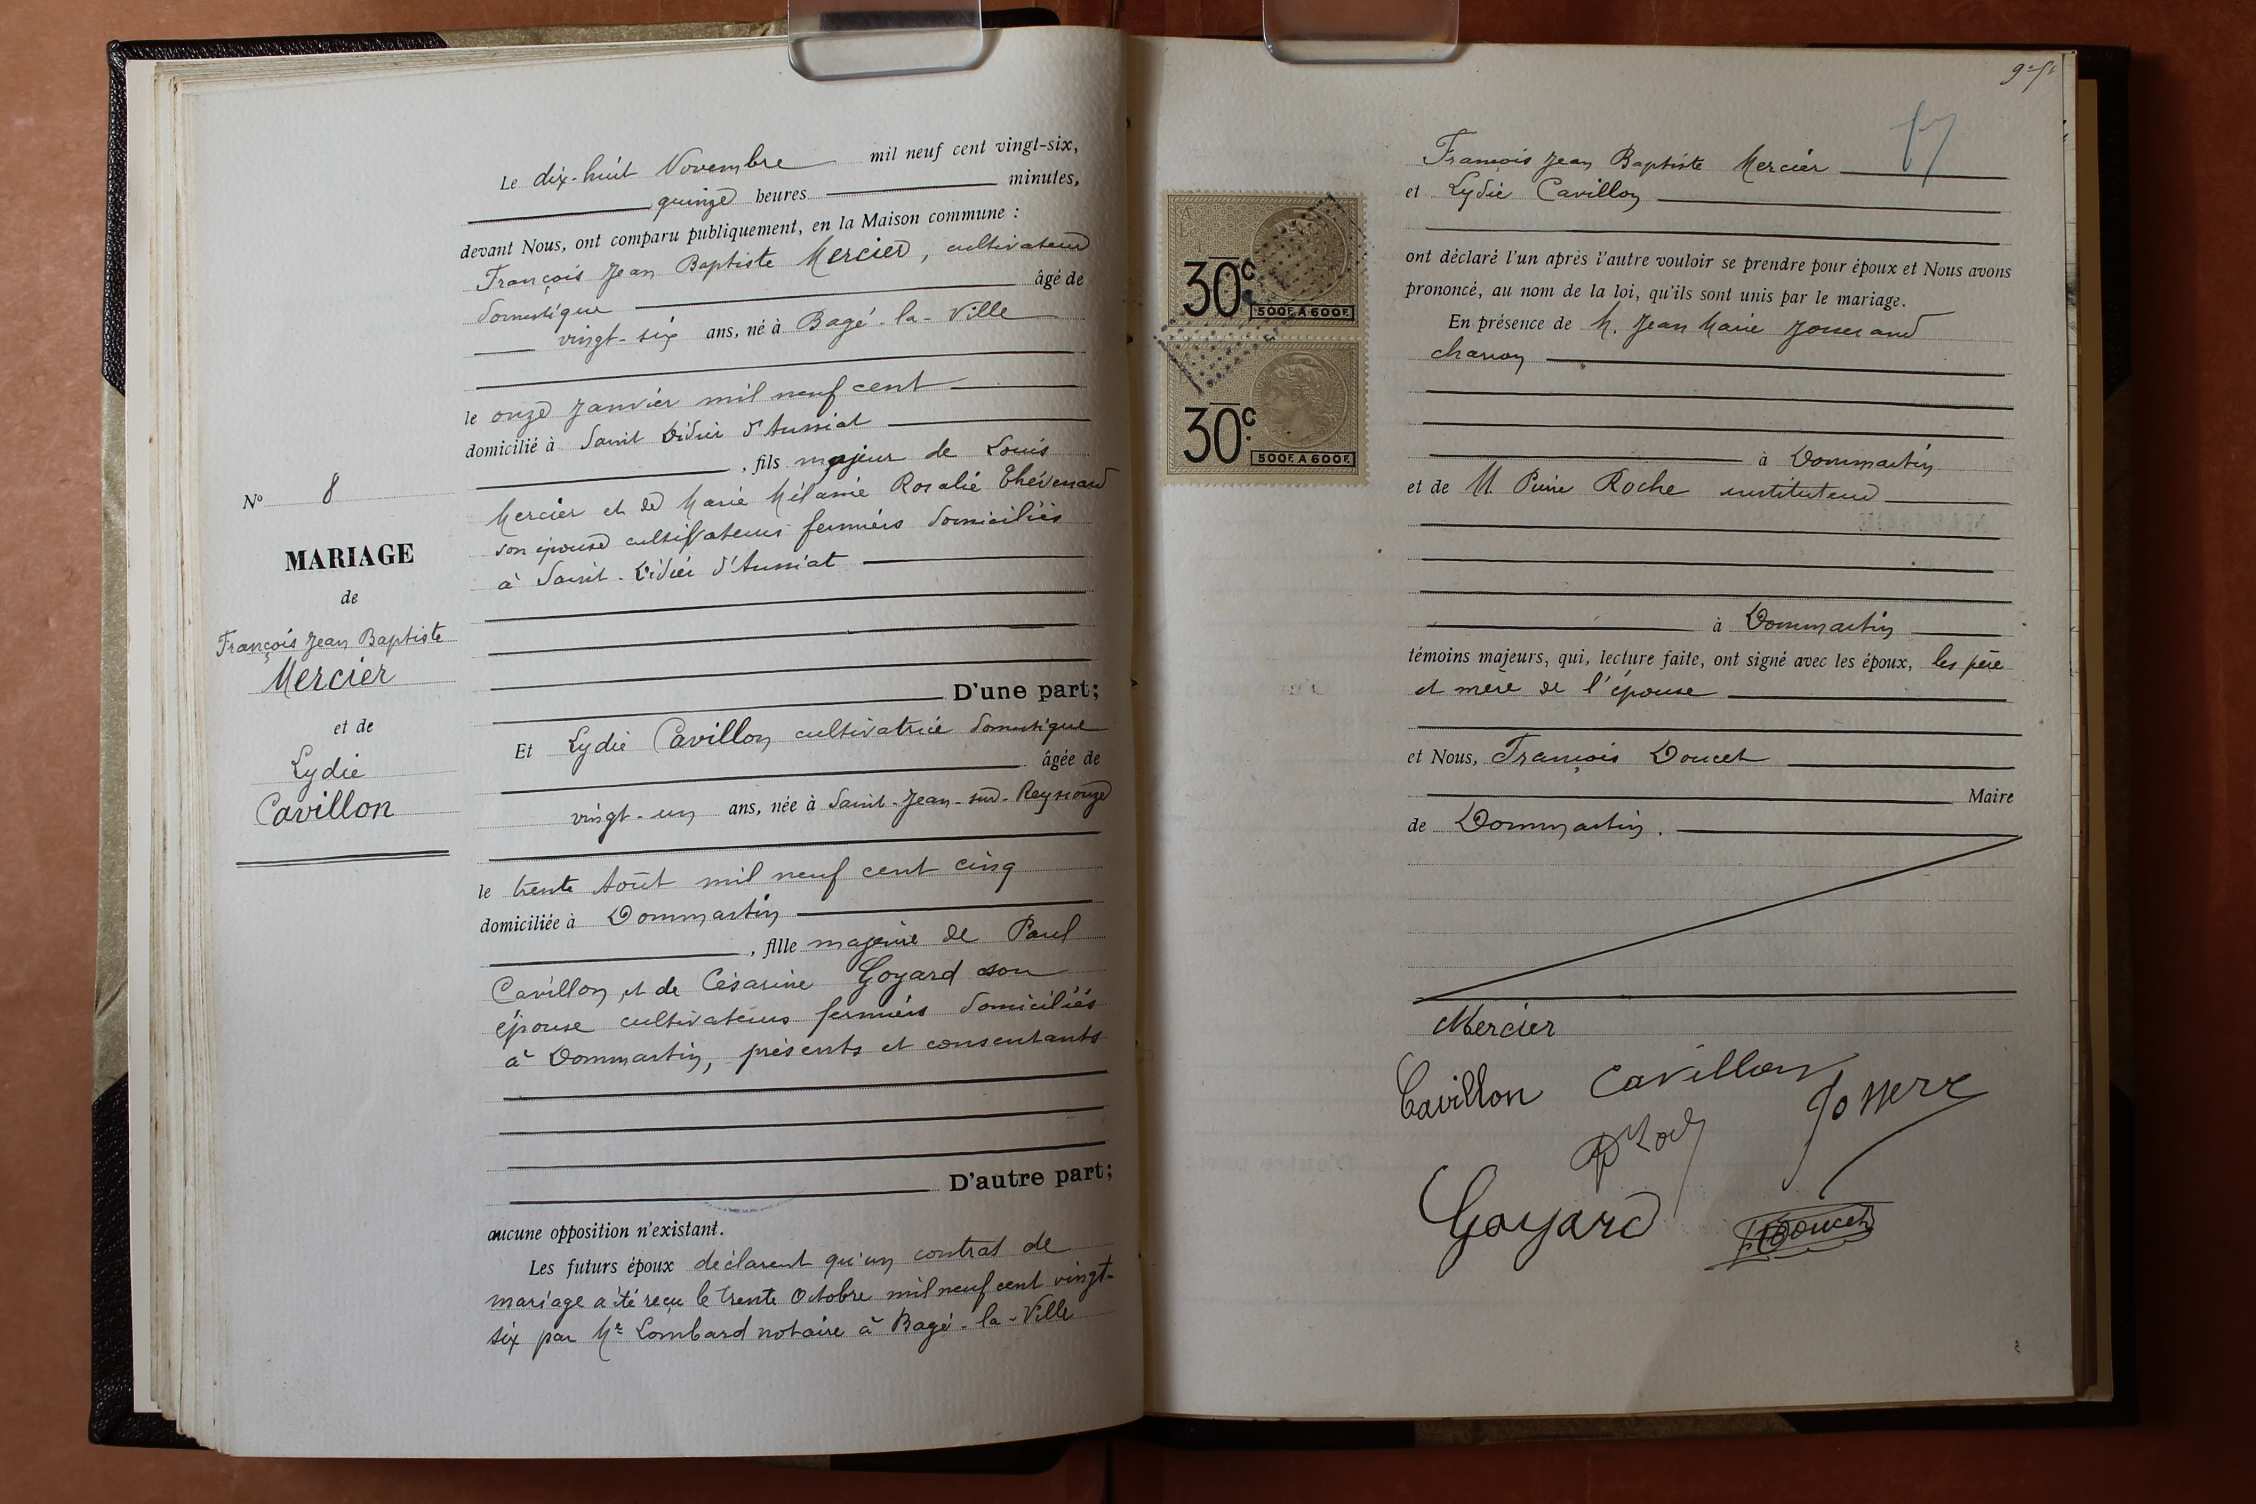 Le dix-huit Novembre mil neuf cent vingt-six,
quinze heures minutes,
devant Nous, ont comparu publiquement, en la Maison commune :
François Jean Baptiste Mercier, cultivateur
domestique âgé de
vingt-six ans, né à Bagé-la-Ville
le onze Janvier mil neuf cent
domicilié à Saint Didier d'Aussiat
, fils majeur de Louis
Mercier et de Marie Mélanie Rosalie Thévenard
son épouse cultivateurs fermiers domiciliés
à Saint-Didier d'Aussiat
D'une part;
Et Lydie Cavillon cultivatrice domestique
âgée de
vingt-un ans, née à Saint-Jean-sur-Reyssouze
le trente Août mil neuf cent cinq
domiciliée à Dommartin
, fille majeure de Paul
Cavillon et de Césarine Goyard son
épouse cultivateurs fermiers domiciliés
à Dommartin, présents et consentants
D'autre part;
aucune opposition n'existant.
Les futurs époux déclarent qu'un contrat de
mariage a été reçu le trente Octobre mil neuf cent vingt-
six par Me Lombard notaire à Bagé-la-Ville
N° 8
MARIAGE
de
François Jean Baptiste
Mercier
et de
Lydie
Cavillon
17
François Jean Baptiste Mercier
et Lydie Cavillon
ont déclaré l'un après l'autre vouloir se prendre pour époux et Nous avons
prononcé, au nom de la loi, qu'ils sont unis par le mariage.
En présence de M. Jean Marie Josserand
charron
à Dommartin
et de M. Pierre Roche instituteur
à Dommartin
témoins majeurs, qui, lecture faite, ont signé avec les époux, les père
et mère de l'épouse
et Nous, François Doucet
Maire
de Dommartin.
Mercier
Cavillon Cavillon
Goyard Doucet
30c
500F. A 600F.
30c.
500F. A 600F.